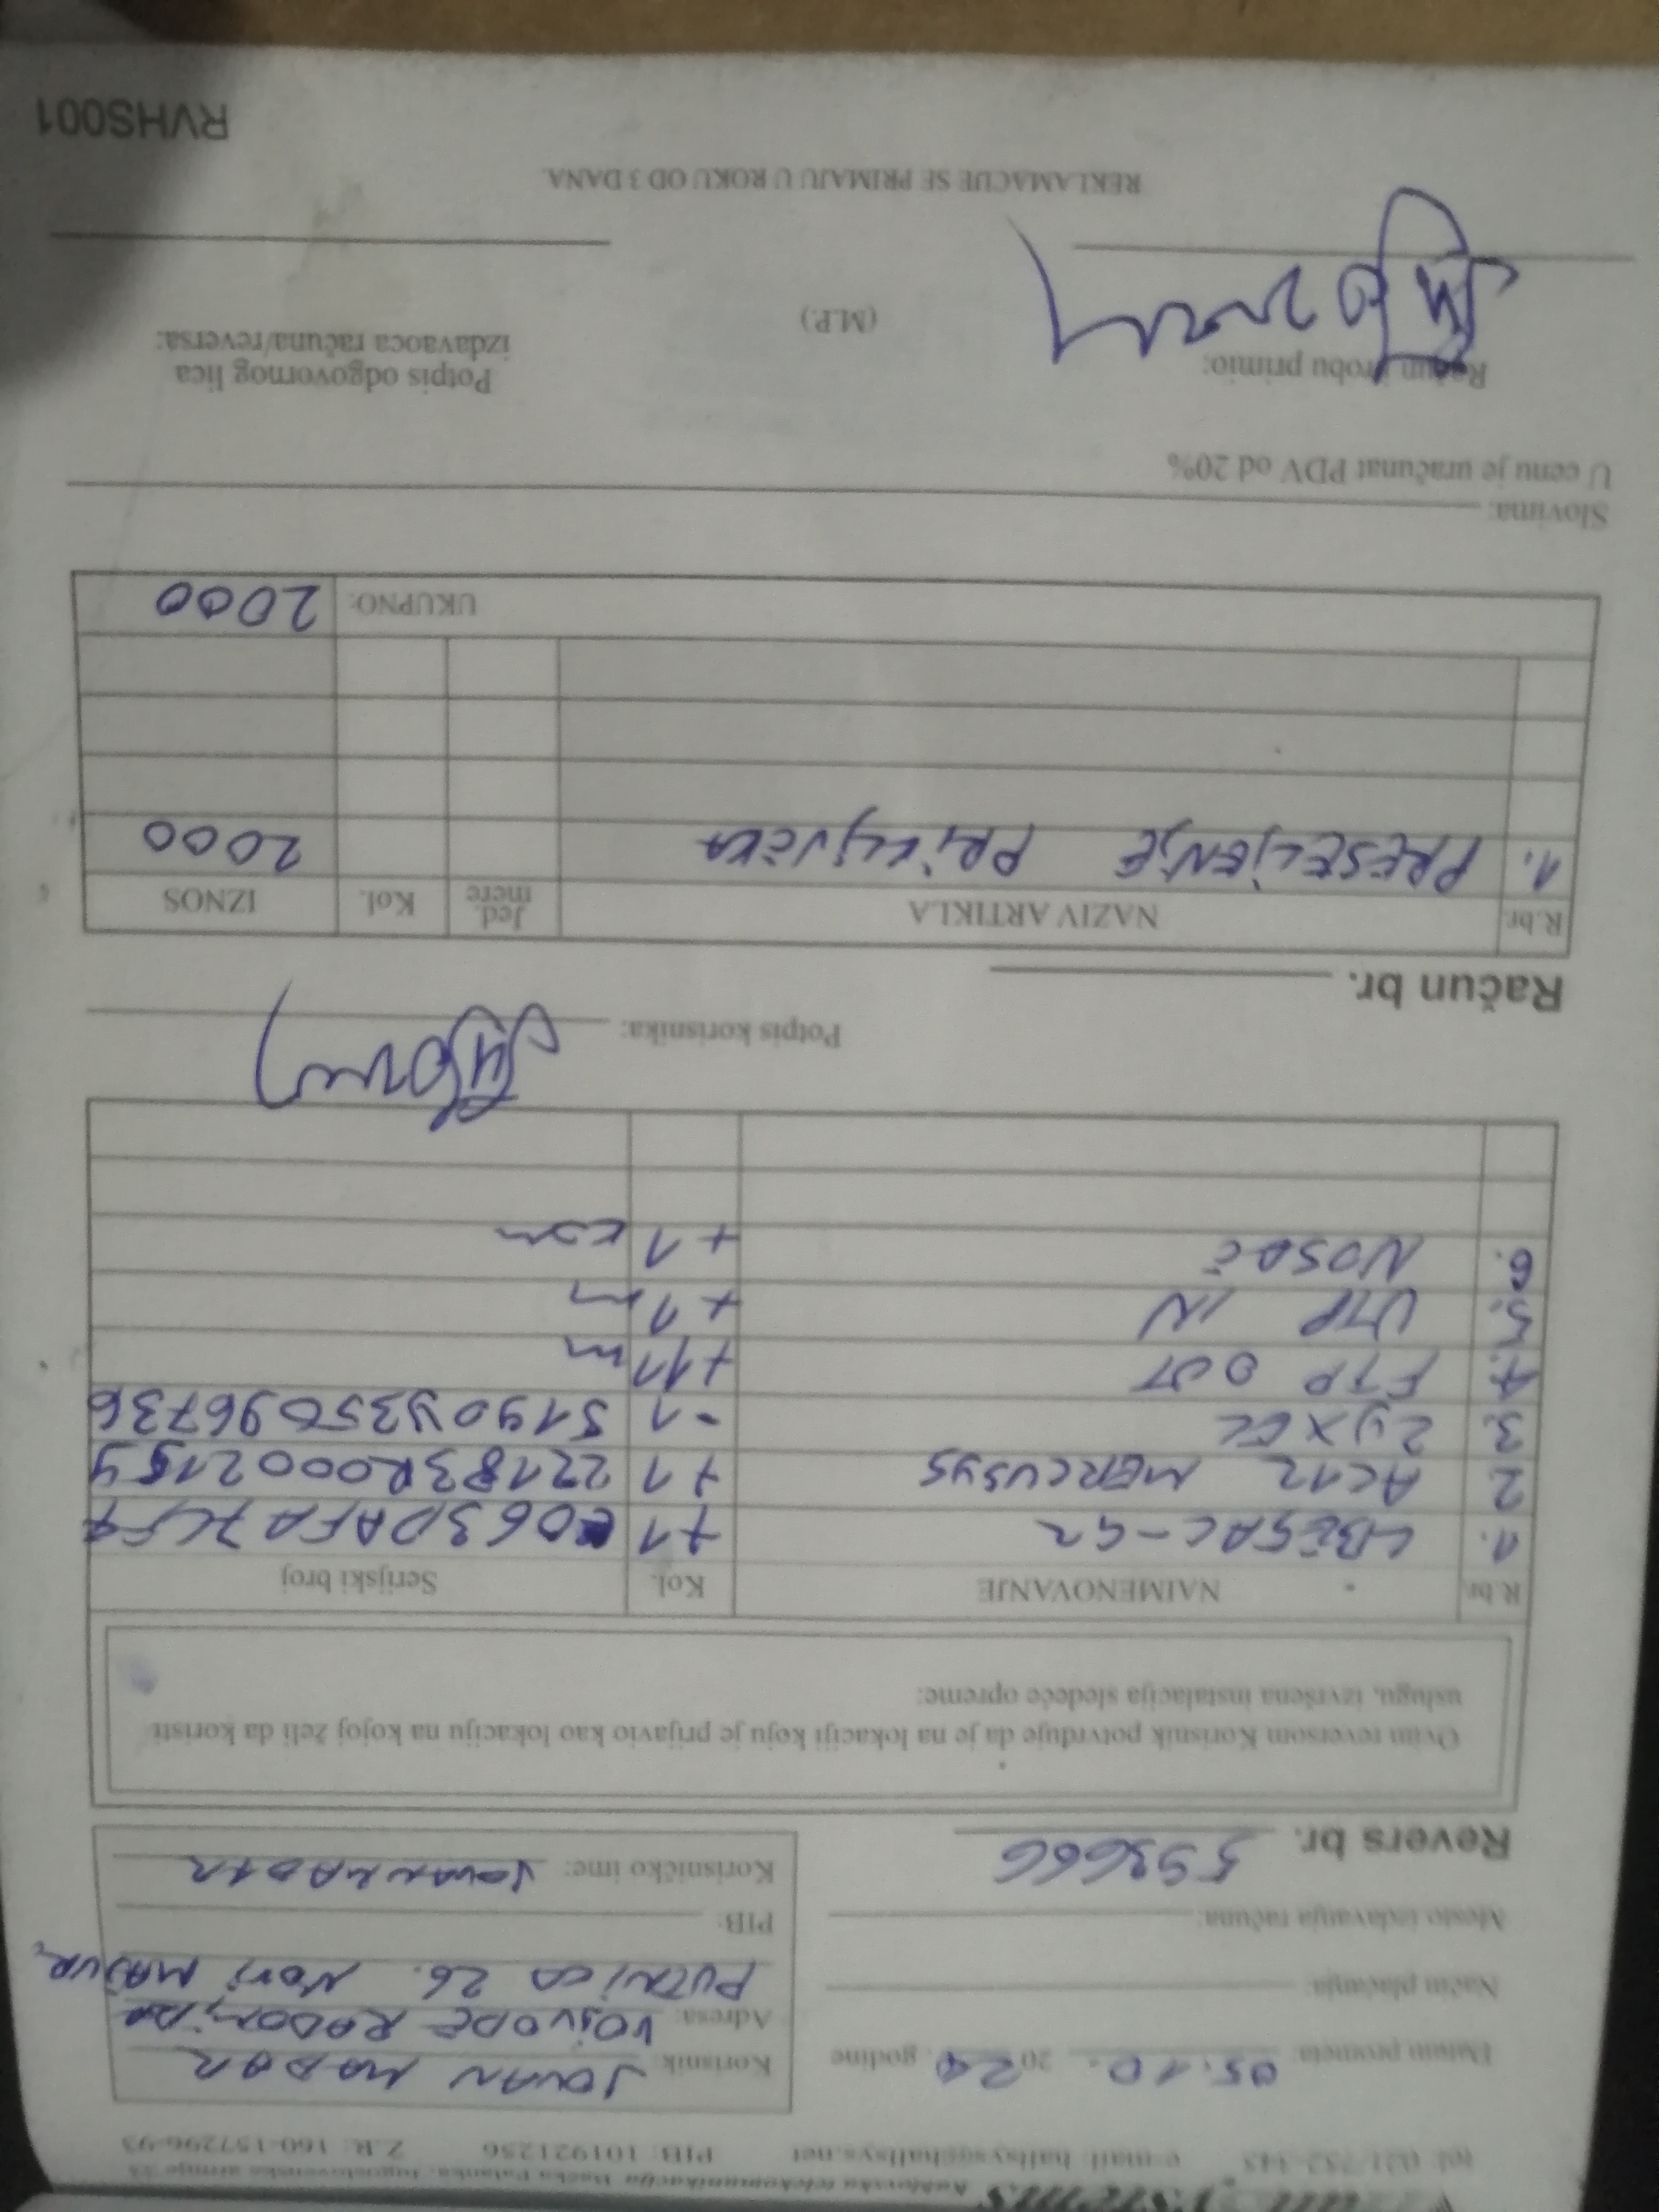 tel: 021/752-143 e-mail: hallsys@hallsys.net PIB: 101921256 Z.R: 160-157296-93
Datum prometa: 05.10. 2024 godine
Način plaćanja:
Mesto izdavanja računa:
Revers br. 593666
Korisnik: JOVAN MADAR
Adresa: VOJVODE RADOMIRA
PUTNIKA 26. NOVI MAJUR,
PIB:
Korisničko ime: JOVANMADAR
Ovim reversom Korisnik potvrđuje da je na lokaciji koju je prijavio kao lokaciju na kojoj želi da koristi
uslugu, izvršena instalacija sledeće opreme:
R.br. NAIMENOVANJE Kol. Serijski broj
1. LBE5AC-G2 +1 E063DAFA7CF4
2 AC12 MERCUSYS +1 22183R0002159
3. ZYXEL -1 S190Y35096736
4. FTP OUT +11 m
5. UTP IN +1 m
6. NOSAČ +1 KOM
Potpis korisnika:
Račun br.
R.br. NAZIV ARTIKLA Jed. mere Kol. IZNOS
1. PRESELJENJE PRIKLJUČKA 2000
UKUPNO: 2000
Slovima:
U cenu je uračunat PDV od 20%
Račun i robu primio:
(M.P.)
Potpis odgovornog lica
izdavaoca računa/reversa:
REKLAMACIJE SE PRIMAJU U ROKU OD 3 DANA.
RVHS001